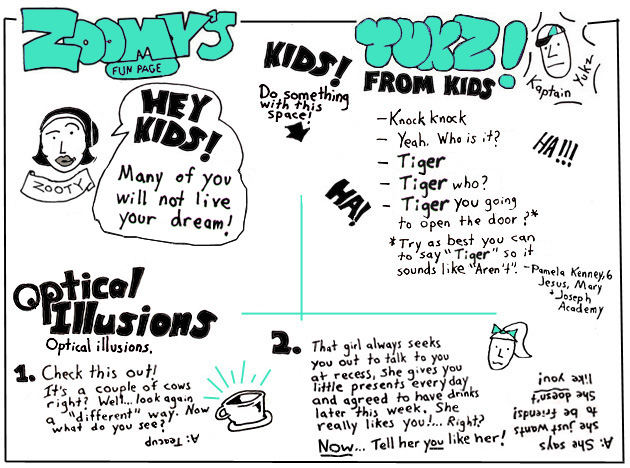 ZOOMY'S
FUN PAGE
HEY
KIDS!
Many of you
will not live
your dream!
ZOOTY
KIDS!
Do something
with this
space!
YUKZ!
FROM KIDS
Kaptain Yukz
– Knock knock
– Yeah. Who is it?
– Tiger
– Tiger who?
– Tiger you going
to open the door?*
*Try as best you can
to say "Tiger" so it
sounds like "Aren't".
– Pamela Kenney, 6
Jesus, Mary
+ Joseph
Academy
HA!!!
HA!
Optical
Illusions
Optical illusions.
1. Check this out!
It's a couple of cows
right? Well... look again
a "different" way. Now
what do you see?
A: Teacup
2. That girl always seeks
you out to talk to you
at recess, she gives you
little presents every day
and agreed to have drinks
later this week. She
really likes you!... Right?
Now... Tell her you like her!
A: She says
she just wants
to be friends!
She doesn't
like you!